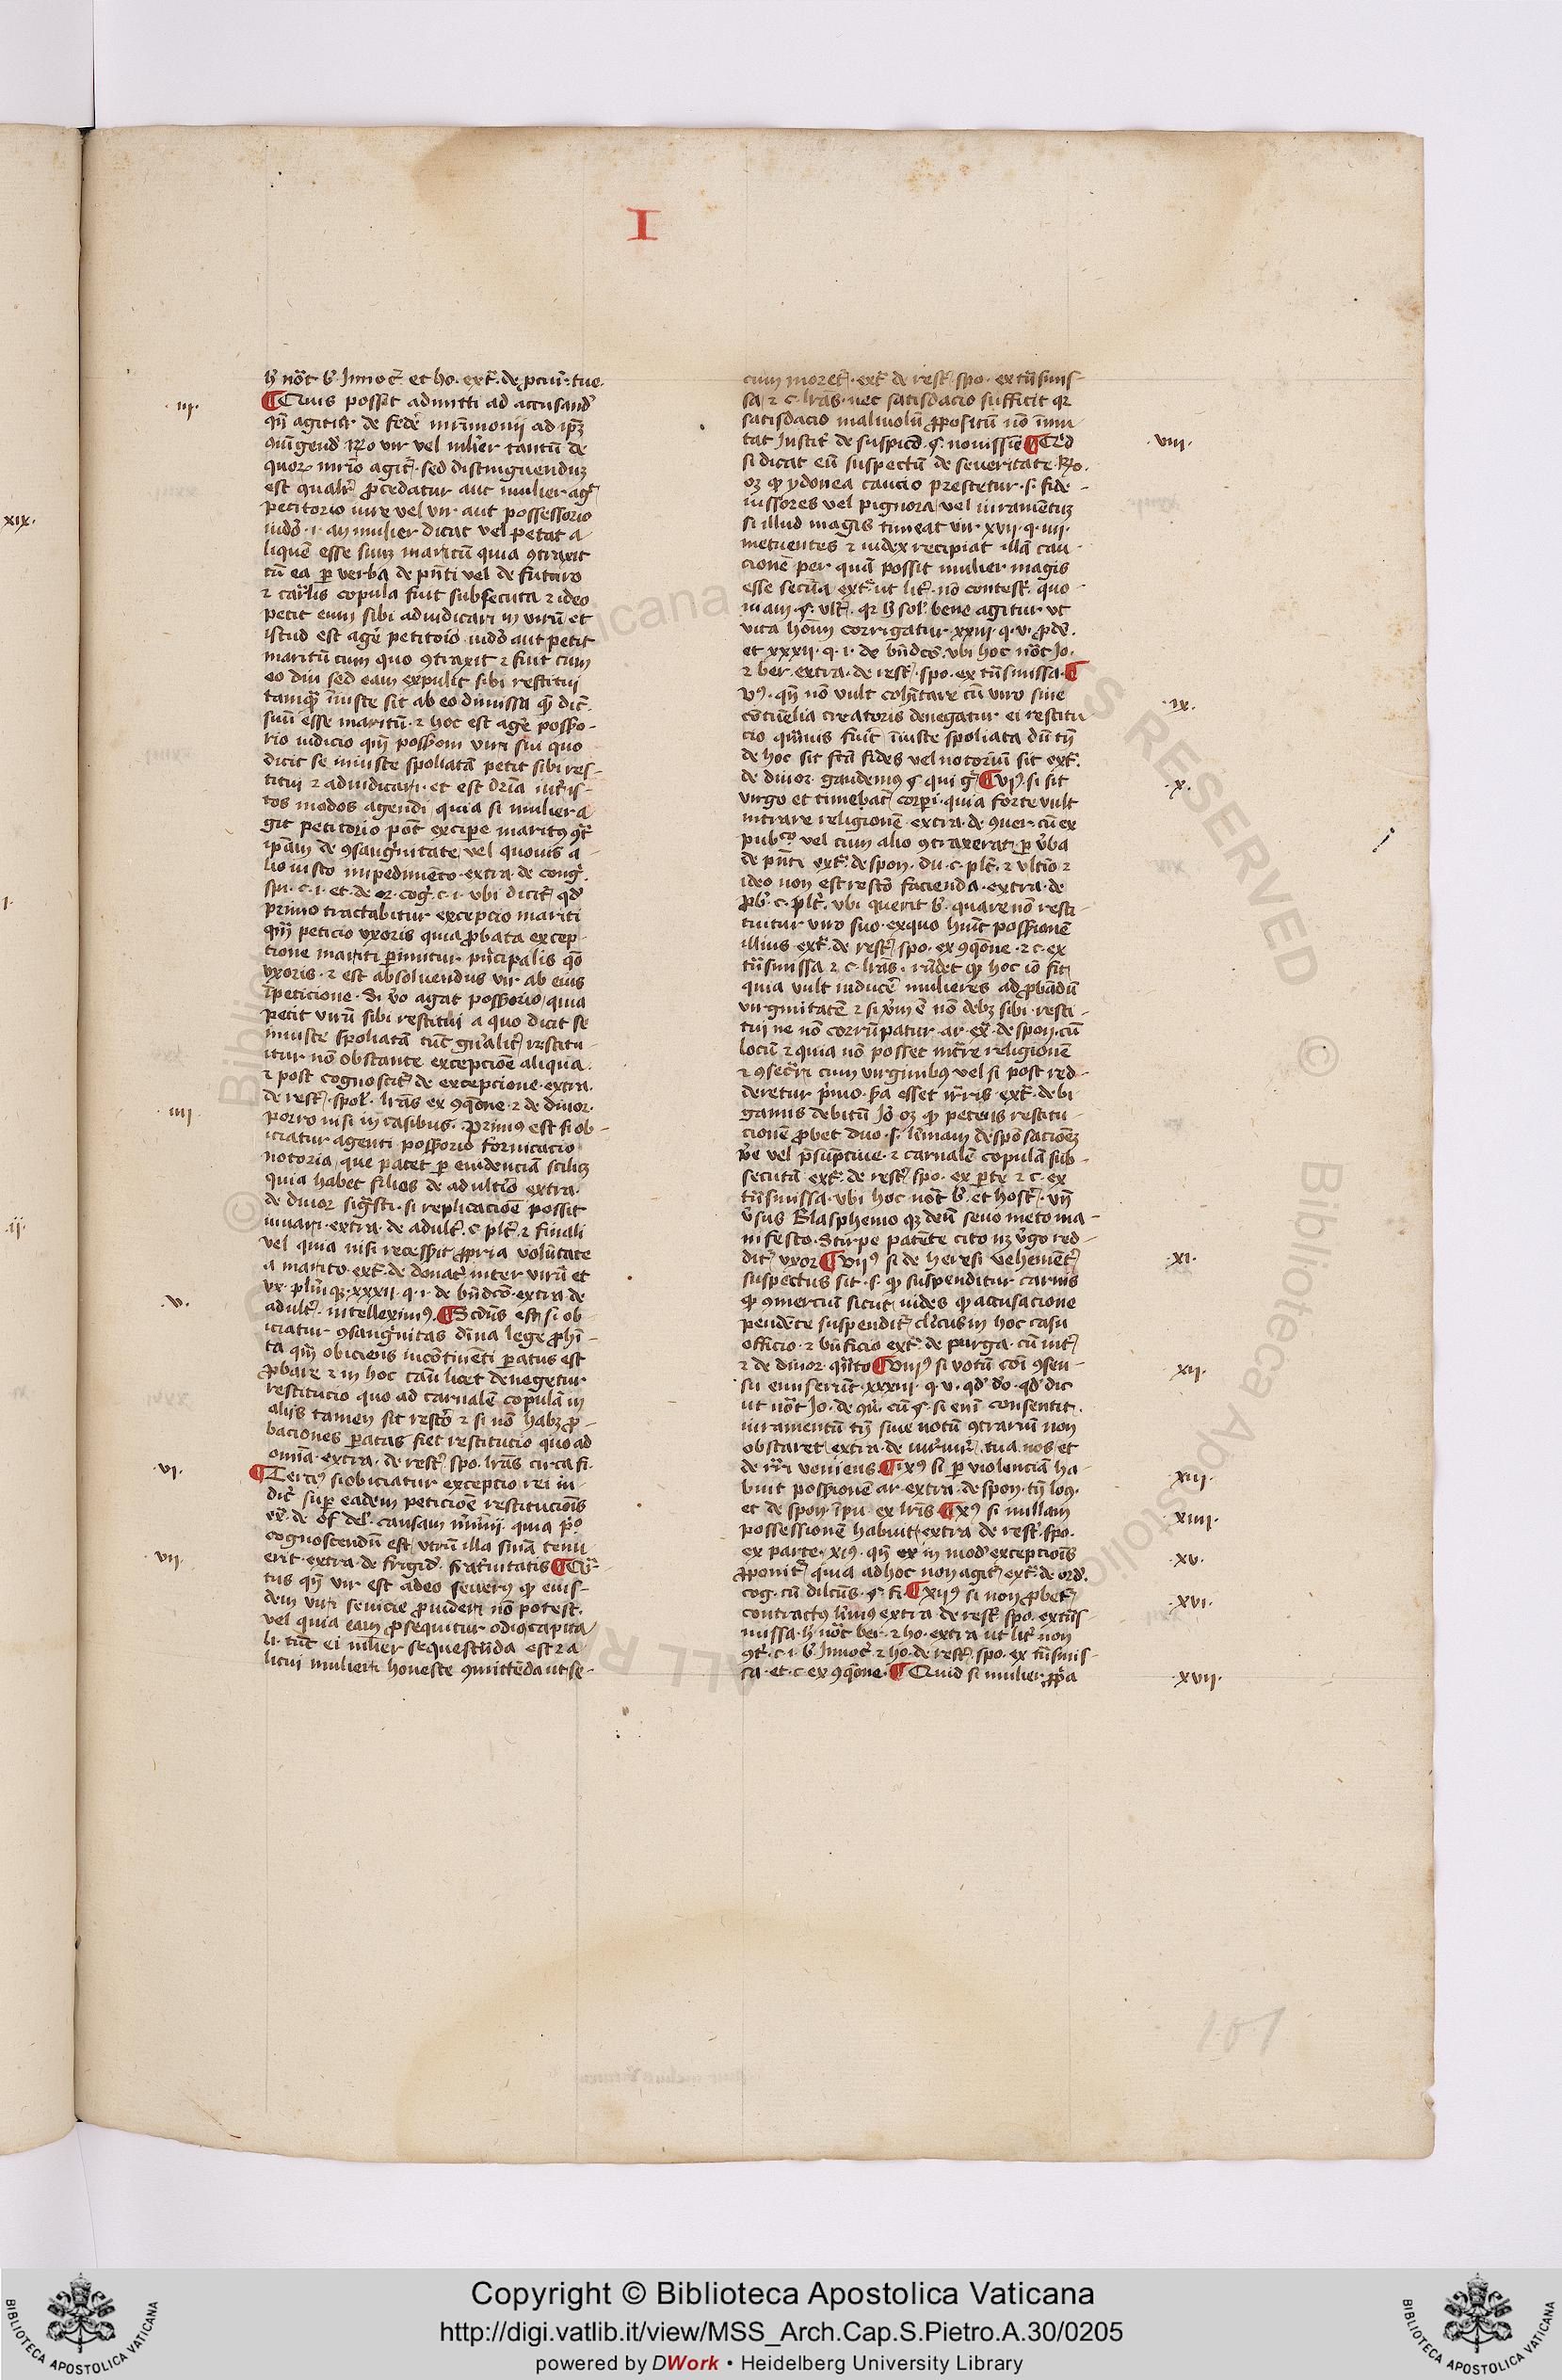 I
h̄ nōt b̓ Innoc̄ et ho. ext̄. de ꝓcur̄. tue.
.iij.
¶ Quis possit admitti ad accusand̓
qn̄ agitur de fede mr̄imonii ad ip̄ꝫ
ꝯiūgend̓ Rn̄o vir vel mlier tantū de
quoꝝ mr̄io agit̄. sed distinguenduꝫ
est qualit̄ ꝓcedatur aut mulier agit̄
petitorio iure vel vir aut possessorio
iudō. i. an mulier dicat vel petat a
liquē esse suuꝫ maritū quia ꝯtraxit
cū ea ꝑ verba de pn̄ti vel de futuro
⁊ car̄lis copula fuit subsecuta ⁊ ideo
petit eum sibi adiudicari in virū et
istud est agē petitoīo iudō aut petit
maritū cum quo ꝯtraxit ⁊ fuit cum
eo diu sed eam expulit sibi restitui
tamqͣꝫ īiuste sit ab eo dimissa qͣꝫ dic̄.
suū esse maritū. ⁊ hoc est agē possō-
rio iudicio qm̄ possōem viri sui quo
dicit se iniuste spoliatā petit sibi res-
titui ⁊ adiudicari. et est dr̄ia int̓ is-
tos modos agendi quia si mulier a
git petitorio pōt excipe maritꝰ ꝯt̄
ip̄am de ꝯsang̓nitate vel quouis a-
lio iusto impedimēto. extra. de cong̓.
spū. c. i. et. de eo. cog̓. c. i. vbi dicit̄ qd̓
primo tractabitur excepcio mariti
qm̄ peticio vxoris quia ꝓbata excep-
tione mariti ꝑimitur p̓ncipalis q̄o
vxoris. ⁊ est absoluendus vir ab eius
īpeticione. Si v̓o agat possorio quia
petit virū sibi restitui a quo dicit se
iniuste spoliatā tūc gn̄alit̄ restitu-
itur nō obstante excepcioē aliqua.
⁊ post cognoscit̄ de excepcione. extra.
de rest̄. spol̓. lr̄as ex ꝯq̄one. ⁊ de diuor.
.iiij.
porro nisi in casibus. Primꝰ est si ob-
iciatur agenti possorio fornicacio
notoria que patet ꝑ euidenciā scilicꝫ
quia habet filios de adultīo extra.
de diuor sig̓sti. si replicacioē possit
iuuari. extra. de adult̄. c. plt̄. ⁊ finali
vel quia nisi recessit ꝓpria volūtate
a marito. ext̄. de donat̄ inter virū et
vx. plūqꝫ. xxxii. q. i. de bn̄dcō. extra. de
.v.
adult̄. intelleximꝰ. ¶ Scd̓us est si ob-
iciatur ꝯsang̓nitas diīna lege ꝓhī-
ta qm̄ obiciens incōtinēti ꝑatus est
ꝓbare ⁊ in hoc cāu licet denegetur
restitucio quo ad carnalē copulā in
aliis tamen fit rest̄o ⁊ si nō habꝫ ꝓ-
baciones ꝑatas fiet restitucio quo ad
om̄ia. extra. de rest̄. spo. lr̄as circa fi.
.vi.
¶ Tercꝰ si obiciatur exceptio rei iu-
dic̄ sup eadem peticioē restitucioīs
cognoscendū est vtrū illa sniā tenu
.vii.
erit. extra. de frigid̓. fr̄at̄nitatis ¶ Qr̄-
tus qn̄ vir est adeo seuerꝰ qꝫ eius-
dem viri seuicie ꝓuideri nō potest.
vel quia eam ꝓsequitur odio capita
li. tūc ei mlier sequestrāda est ⁊ a
licui mulieri honeste ꝯmittēda ut se-
cum moret̄. ext̄. de rest̄. spo. ex tr̄smis-
sa ⁊ c. lr̄as. nec satisdacio sufficit qꝛ
satisdacio maliuolū ꝓpositū nō īmu
.viii.
tat Instit̄. de suspic̄. ꝗ. nouissīe ¶ Qd̓
si dicat eū suspectū de seueritate. Rn̄o.
oꝫ qꝫ ydonea caucio prestetur. s. fide-
iussores vel pignora vel iuramētuꝫ
si illud magis timeat vir. xvii. q. iiii.
metuentes ⁊ iudex recipiat illā cau-
cionē per quā possit mulier magis
esse secūra ext̄. ut lit̄. nō contest̄. quo
niam. ꝗ. vlt̄. qꝛ h̄ sol̓. bene agitur vt
vita hoīm corrigatur xxiii. q. v. ꝓdē.
et xxxii. q. i. de bn̄dcō. vbi hoc nōt Jo.
⁊ ber. extra. de rest̄. spo. ex tr̄smissa. ¶
.ix.
vꝰ. qn̄ nō vult cohītare cū viro sine
cōtūelia creatoris denegatur ei restitu
cio quāuis fuit īiuste spoliata dū tn̄
de hoc sit fc̄a fides vel notoriū sit ext̄.
.x.
de diuor. gaudemꝰ ꝗ qui g̓ ¶ viꝰ. si sit
virgo et timebat̄ corpi. quia forte vult
intrare religionē. extra. de ꝯuer. cū ex
pub̄co vel cum alio ꝯtraxerat ꝑ v̓ba
de pn̄ti ext̄. de spon. du. c. plt̄. ⁊ vltīo ⁊
ideo non est restō facienda. extra. de
ꝓb̓. c. plt̄. vbi querit b̓. quare nō resti-
tuitur viro suo. exquo hūit possionē
illius ext̄. de rest̄. spo. ex ꝯq̄one. ⁊ c. ex
tr̄smissa ⁊ c. lr̄as. rn̄det qꝫ hoc iō fit
quia vult inducē mulieres ad ꝓbādū
virginitatē ⁊ si v̓um ē nō debꝫ sibi resti-
tui ne nō corrūpatur. ar. ex̄. de spon. cū
locū ⁊ quia nō posset int̓re religionē
⁊ ꝯsec̓ri cum virginibꝰ vel si post red-
deretur
gamis debitū Jo. oꝫ qꝫ petens restitu-
cionē ꝓbet duo. s. l̓imam despōsacionē
v̓e vel p̄sūptiue. ⁊ carnalē copulā sub-
secutā ext̄. de rest̄. spo. ex ꝑte ⁊ c. ex
tr̄smissa. vbi hoc nōt b̓. et host̄. vn̄
v̓sus Blasphemo qꝫ deū seuo meto ma-
nifesto. Stirpe patēte cito nꝫ v̓go red-
.xi.
dit̄ vxor ¶ viiꝰ si de heresi vehemēt̄
suspectus sit. s. qꝫ suspenditur carnis
qꝫ ꝯmerciū sicut vides qꝫ accusacione
pendēte suspendit̄ cl̓icus in hoc casu
officio. ⁊ bn̄ficio ext̄. de purga. cū int̄
.xii.
⁊ de diuor. qūto ¶ viiiꝰ si votū coī ꝯsen-
su emiserūt. xxxiii. q. v. qd̓ do. qd̓ dic
ut nōt Jo. de ꝯū. cū ꝗ. si enī consentit.
iuramentū tn̄ siue votū ꝯtrariū non
obstaret extra. de iur̄iur̄. tua nos et
.xiii.
de iur̄i veniens. ¶ ixꝰ si ꝑ violenciā ha-
buit possionē ar. extra. de spon. tn̄ loꝰ.
.xiiii.
et de spon. īpu. ex lr̄is ¶ xꝰ si nullam
possessionē habuit. extra de rest̄. spo.
.xv.
ex parte. xiꝰ. qn̄ ex in mod̓ excepcioīs
ꝓponit̄ quia ad hoc non agit̄ ext̄. de ord̓.
.xvi.
cog. cū dilcūs. ꝗ. fi. ¶ xiiꝰ si non ꝓbet̄
contractꝰ l̓imꝰ extra de rest̄. spo. ex tr̄s-
missa. h̄ nōt ber. ⁊ ho. extra ut lit̄ non
ꝯt̄. c. i. b̓ Innoc̄ ⁊ ho. de rest̄. spo. ex tr̄smis-
.xvii.
sa. et. c. ex ꝯq̄one. ¶ Quid si mulier ꝓp̄a
xix.
i.
.ii.
107
Copyright © Biblioteca Apostolica Vaticana
http://digi.vatlib.it/view/MSS_Arch.Cap.S.Pietro.A.30/0205
powered by DWork • Heidelberg University Library
BIBLIOTECA APOSTOLICA VATICANA
BIBLIOTECA APOSTOLICA VATICANA